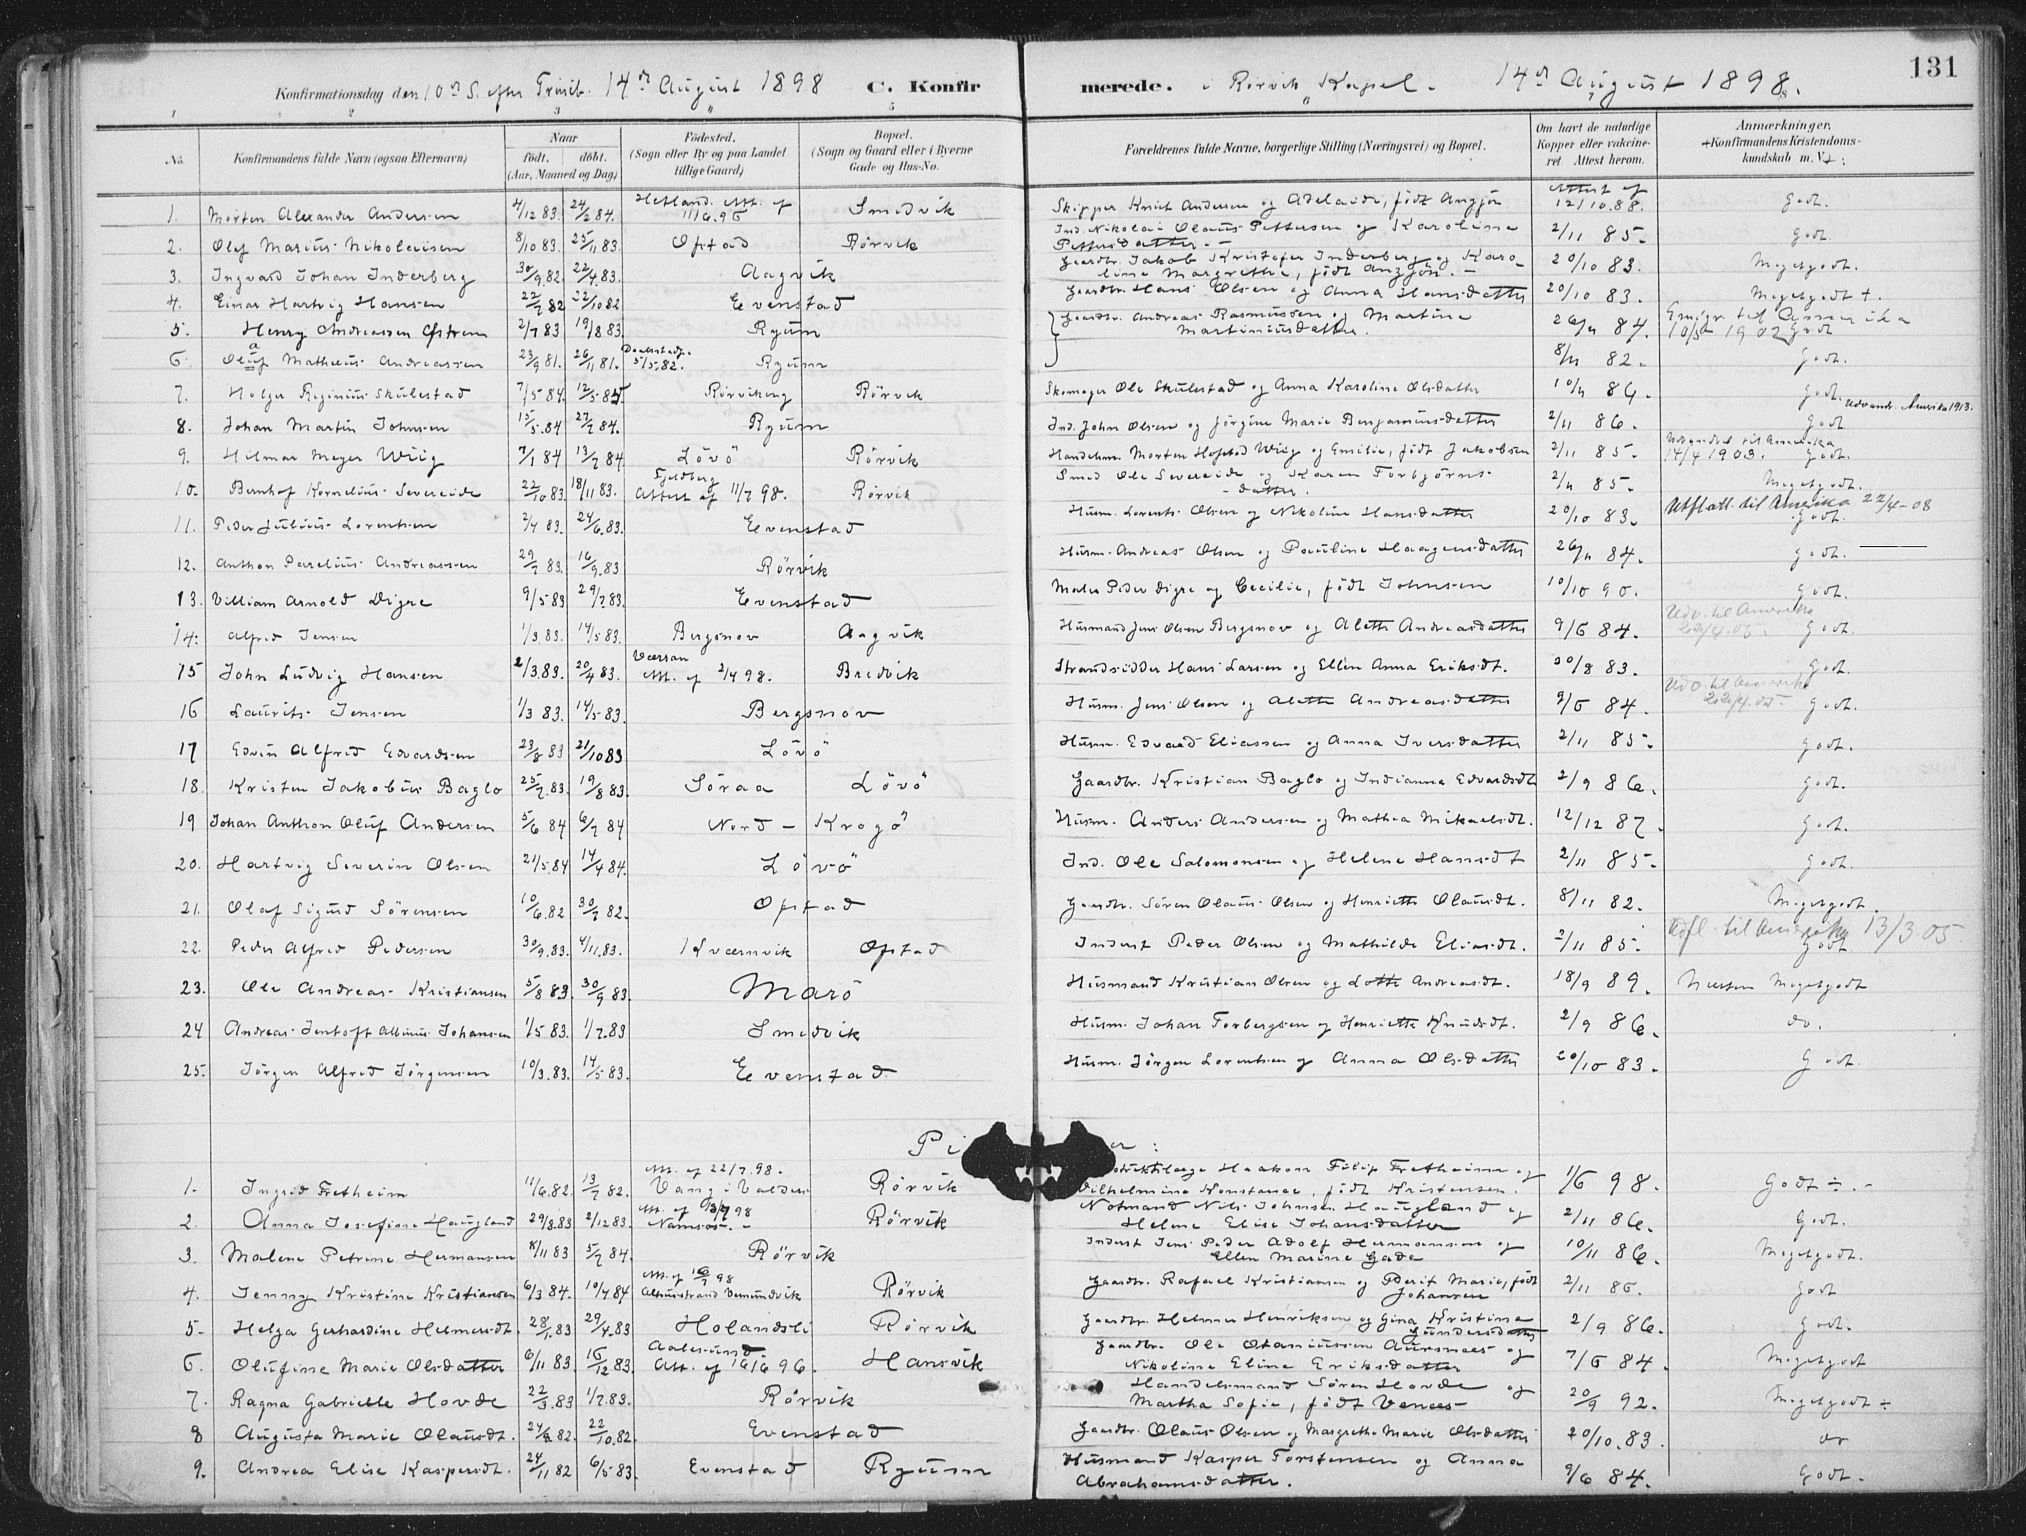 131
Konfirmationsdag den 10de S. efter Trinit. 14de August 1898 C. Konfirmerede. i Rörvik Kapel. 14de August 1898.
1 2 3 4 5 6 7 8
No. Konfirmandens fulde Navn (ogsaa Efternavn) Naar født. døbt. (Aar, Maaned og Dag) Fødested. (Sogn eller By og paa Landet tillige Gaard) Bopæl. (Sogn og Gaard eller i Byerne Gade og Hus-No. Forældrenes fulde Navne, borgerlige Stilling (Næringsvei) og Bopæl. Om havt de naturlige Kopper eller vakcineret. Attest herom. Anmærkninger, Konfirmandens Kristendomskundskab m. V.
1. Morten Alexander Andersen 4/12 83. 24/2 84. Hetland. Att. af 11/6.96 Smedvik Skipper Knut Andersen og Adelaide, födt Angjön Attest af 12/10.88. Godt.
2. Olef Marius Nikolaisen 8/10 83. 25/11 83. Opstad Rørvik Ind. Nikolai Olaus Pettersen og Karoline Pettersdatter. 2/11 85. Godt.
3. Ingvard Johan Inderberg 30/9.82. 22/4.83. Aagvik Gaardbr. Jakob Kristofer Inderberg og Karoline Margrethe, födt Angjön. 20/10 83. Megetgodt.
4. Einar Hartvig Hansen 22/7 82 22/10 82 Evenstad Gaardbr. Hans Olsen og Anna Hansdatter 20/10 83. Megetgodt +.
5. Henry Andreassen Østrem 2/7 83 19/8 83 Ryum Gaardbr. Andreas Rasmussen og Martine Martiniusdatter. 26/11 84. Emigr. til Amerika 10/5 1902 Godt
6. Oluf Matheus Andreassen 23/9 81. 26/11 81. 5/5.82. Ryum 8/11 82. Godt.
7. Holger Reginius Skulestad 7/5 84. 12/5 85. Rörvikeng Rørvik Skomager Ole Skulestad og Anna Karoline Olsdatter 10/11 86. Godt. Udvandr. Amerika 1913.
8. Johan Martin Johnsen 15/5.84 27/7 84. Ryum Ind. John Olsen og Jörgine Marie Benjaminsdatter 2/11 86. Godt
9. Hilmar Meyer Wiig 7/1 84 13/7 84 Lövö Rørvik Handelsm. Morten Hopstad Wiig og Emilie, födt Jakobsen 2/11 85. Udvandret til Amerika 14/4 1903. Godt.
10. Bernhof Kornelius Severeide 22/10 83. 18/11 83. Fjeldberg Attest af 11/7 98. Rørvik Smed Ole Severeide og Karen Torbjørnsdatter. 2/11 85. Megetgodt.
11. Peder Julius Lorentsen 2/4 83. 24/6.83. Evenstad Husm. Lorents Olsen og Nikoline Hansdatter 20/10 83. Utflytt. til Amerika 22/4-08 Godt.
12. Anthon Parelius Andreassen 29/7 83. 16/9.83 Rørvik Husm. Andreas Olsen og Pauline Haagensdatter 26/11 84. Godt.
13. Villiam Arnold Digre 9/5 83 29/7 83. Evenstad Maler Peder Digre og Cecilie, födt Johnsen 10/10 90. Godt.
14. Alfred Jensen 1/3 83. 14/5 83. Bergsnov Aagvik Husmand Jens Olsen Bergsnov og Alette Andreasdatter 9/6 84. Udv. til Amerika 22/4.05. Godt.
15 John Ludvig Hansen 2/3.83. 20/4 83. Att. af 2/4 98. Bredvik Strandsidder Hans Larsen og Ellen Anna Eriksdt. 20/8 83. Godt.
16 Laurits Jensen 1/3 83. 14/5-83. Bergsnov Husm. Jens Olsen og Alette Andreasdatter 9/6 84. Udv. til Amerika 22/4.05. Godt.
17 Edvin Alfred Edvardsen 23/8 83 21/10 83 Lövö Husm. Edvard Eliassen og Anna Iversdatter 2/11 85. Godt.
18. Kristen Jakobus Baglo 25/7.83. 19/8 83. Söraa Lövö Gaardbr. Kristian Baglo og Indianna Edvardsdt 2/9 86. Godt.
19 Johan Anthon Oluf Andersen 5/6 84 6/7 84 Nord-Krogö Husm. Anders Andersen og Mathea Mikaelsdt. 12/12 87. Godt.
20. Hartvig Severin Olsen 21/5.84 14/4 84. Lövö Ind. Ole Salomonsen og Helene Hansdt 2/11 85. Godt.
21. Olaf Sigurd Sörensen 10/6.82 30/7 82. Opstad Gaardbr. Sören Olaus Olsen og Henriette Olausdt. 8/11 82. Megetgodt.
22. Peder Alfred Pedersen 30/9.83. 4/11.83. Kværnvik Opstad Inderst Peder Olsen og Mathilde Eliasdt. 2/11 85. Udfl. til Amerika 13/3.05 Godt
23. Ole Andreas Kristiansen 5/8 83. 30/9 83. Marö Husmand Kristian Olsen og Lotte Andreasdt. 18/9 89. Næsten Megetgodt
24 Andreas Jentoft Albinus Johansen 1/5 83. 1/7.83 Smedvik Husm. Johan Torbergsen og Henriette Knudsdt. 2/9 86. do.
25. Jörgen Alfred Jörgensen 10/3.83. 14/5 83. Evenstad Husm. Jörgen Lorentsen og Anna Olsdatter 20/10 83. Godt.
1. Ingrid Fretheim 11/6.82. 13/7 82. Att. af 22/7.98. Vang i Valders Rørvik Haakon Filip Fretheim og Vilhelmine Konstance, födt Kristensen. 1/6 98. Godt ÷.
2. Anna Josefine Haugland 29/8.83 2/12 83. Namsos. Rørvik Notmand Nils Johnsen Haugland og Helene Elise Johansdatter 2/11 86. Godt.
3. Malene Petrine Hermansen 8/11 83 5/7 84. Rörvik Inderst Jens Peder Adolf Hermansen og Ellen Marine Gade 10/11 86. Megetgodt.
4. Jenny Kristine Kristiansen 6/3 84. 10/4 84 Att. af 16/7 98 Rørvik Gaardbr. Rafael Kristiansen og Berit Marie, födt Johansen 2/11 86. Godt
5. Helga Gerhardine Helmersdt. 28/1.83 29/4.83 Holandsli Rørvik Gaardbr. Helmer Henriksen og Gina Kristine Gundersdatter 2/9 86. Godt.
6. Olufine Marie Olsdatter 6/11 83 16/12 83. Aalesund Att. af 16/6 96. Hansvik Gaardbr. Ole Otaniussen Aursnes og Nikoline Eline Eriksdatter 7/6 84. Megetgodt
7. Ragna Gabrielle Hovde 22/3.83 1/7.83. Rørvik Handelsmand Sören Hovde og Martha Sofie, födt Venes 20/9 92. Megetgodt ÷
8 Augusta Marie Olausdt. 24/8 82. 22/10.82. Evenstad Gaardbr. Olaus Olsen og Margrethe Marie Olsdatter 20/10.83. do
9. Andrea Elise Kaspersdt. 24/11 82 6/5 83. Evenstad Ryum Husmand Kasper Torstensen og Anna Abrahamsdatter. 9/6 84. Godt.